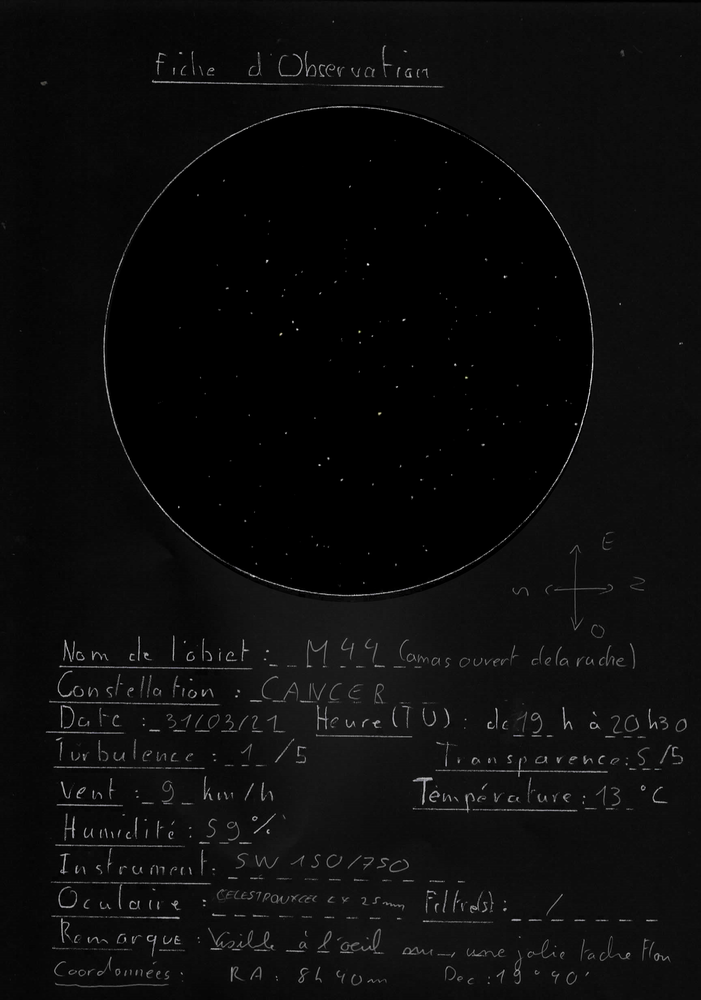 Fiche d'Observation
E
S N
O
Nom de l'objet : M 44 (amas ouvert de la ruche)
Constellation : CANCER
Date : 31/03/21 Heure (TU) : de 19 h à 20 h30
Turbulence : 1 /5 Transparence : 5 /5
Vent : 9 km/h Température : 13 °C
Humidité : 59 %
Instrument : SW 150/750
Oculaire : LX 25mm Filtre(s) : /
Remarque : Visible à l'oeil nu, une jolie tache
Coordonnées : RA : 8h 40m Dec : 19° 40'